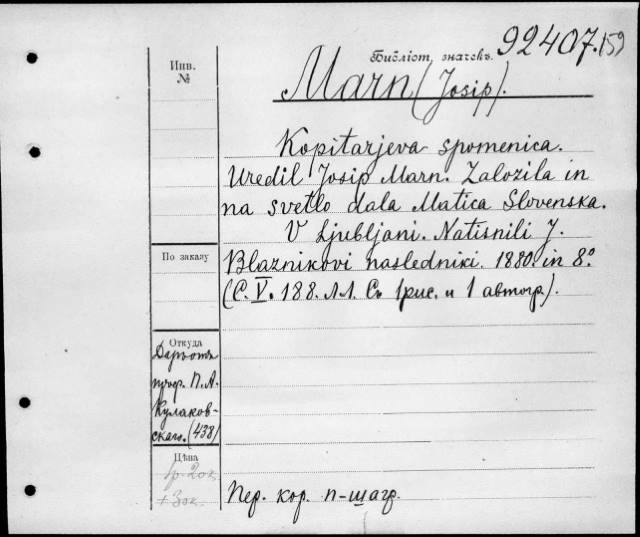 Библіот. значекъ. 92407.159
Инв. №
Marn (Josip).
Kopitarjeva spomenica.
Uredil Josip Marn. Založila in
na svetlo dala Matica Slovenska.
V Ljubljani. Natisnili J.
Blaznikovi nasledniki. 1880. in 8°
(С. V. 188. Л.Л. Съ 1 рис. и 1 автогр.).
По заказу
Откуда
Даръ отъ
проф. П. А.
Кулаков-
скаго. (438)
Цѣна
1р. 20к.
+ 30к.
Пер. кор. п-шагр.